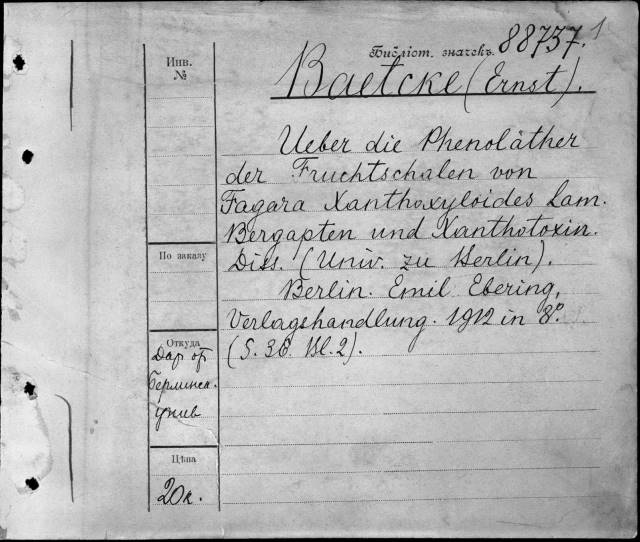 Библіот. значекъ. 88737. 1
Инв.
№
Baetcke (Ernst).
Ueber die Phenoläther
der Fruchtschalen von
Fagara Xanthoxyloides Lam.
Bergapten und Xanthotoxin.
По заказу
Diss. (Univ. zu Berlin).
Berlin. Emil Ebering,
Verlagshandlung. 1912 in 8º.
Откуда
(S. 36. Bl. 2).
Дар от
Берлинск.
унив
Цѣна
20к.